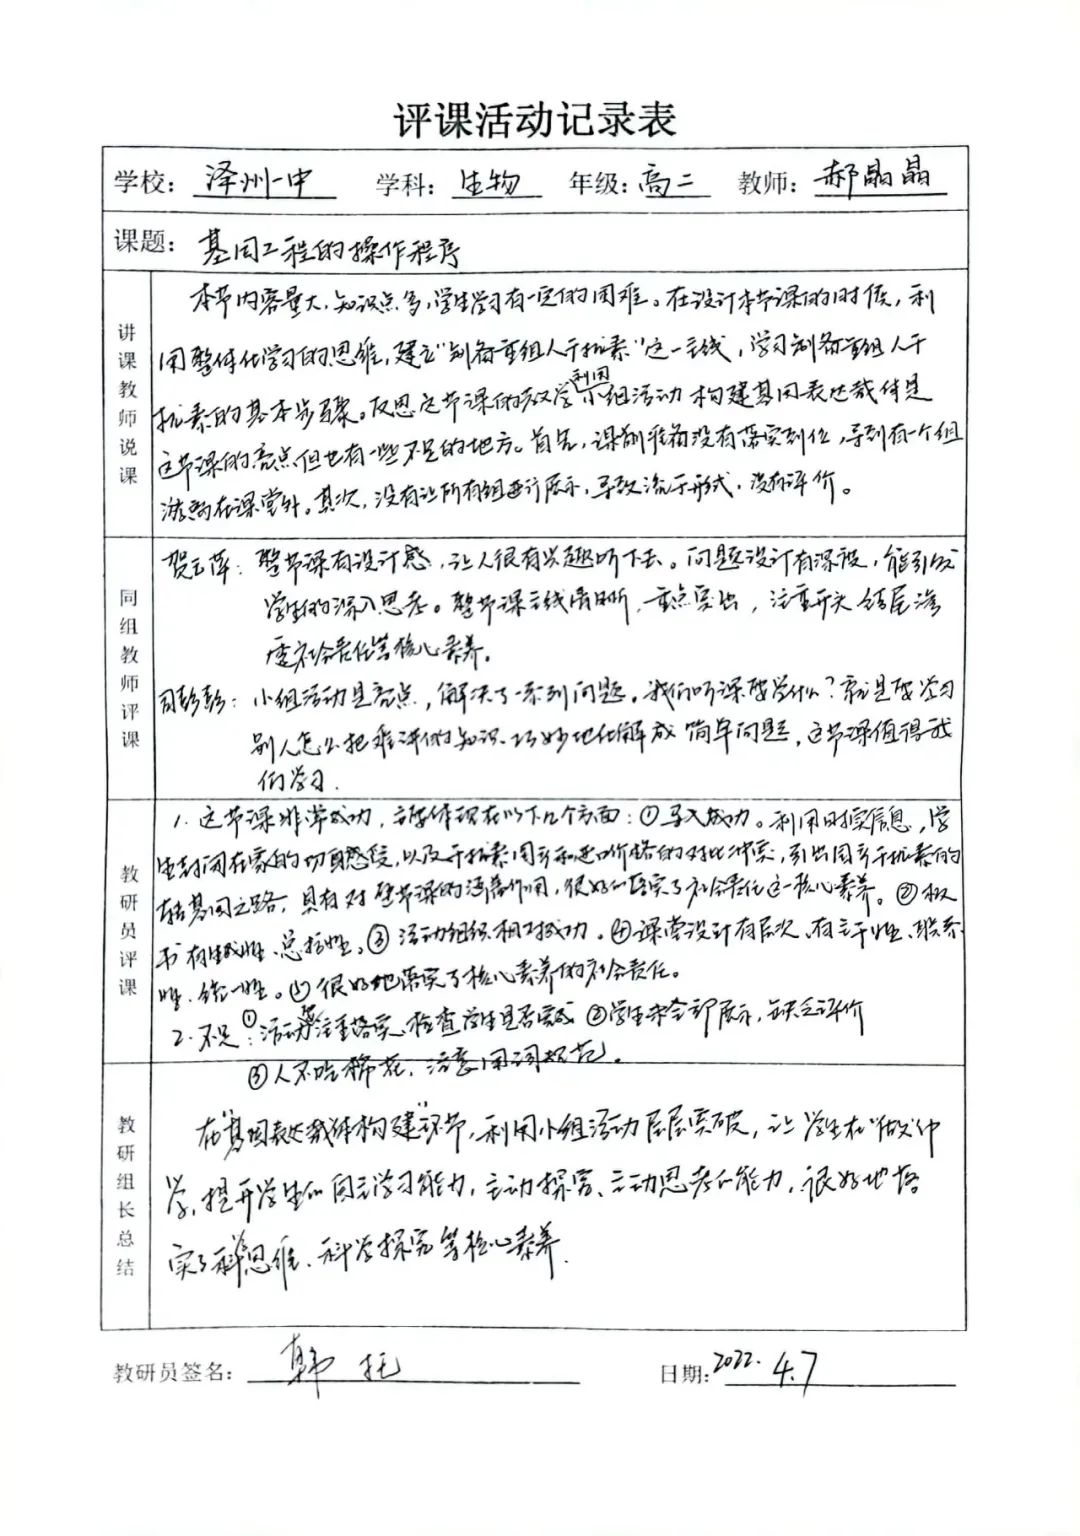 评课活动记录表
学校: 泽州一中 学科: 生物 年级: 高二 教师: 郝晶晶
课题: 基因工程的操作程序
讲课教师说课
本节内容量大,知识点多,学生学习有一定的困难。在设计本节课的时候,利
用整体化学习的思维,建立"制备重组人干扰素"这一主线,学习制备重组人干
扰素的基本步骤。反思这节课的教学利用小组活动构建基因表达载体是
这节课的亮点但也有一些不足的地方。首先,课前准备没有落实到位,导致有一个组
游离在课堂外。其次,没有让所有组进行展示,导致流于形式,没有评价。
同组教师评课
贺云萍: 整节课有设计感,让人很有兴趣听下去。问题设计有深度,能引发
学生的深入思考。整节课主线清晰,重点突出,注重开头结尾渗
透社会责任等核心素养。
司彭彭: 小组活动是亮点,解决了一系列问题。我们听课要学什么?就是要学习
别人怎么把难讲的知识巧妙地化解成简单问题,这节课值得我
们学习.
教研员评课
1. 这节课非常成功,主要体现在以下几个方面:①导入成功。利用时政信息,学
生封闭在家的切身感受,以及干扰素国产和进口价格的对比冲突,引出国产干扰素的
转基因之路,具有对整节课的涵盖作用,很好的落实了社会责任这一核心素养。②板
书有生成性、总括性。③活动组织相对成功。④课堂设计有层次、有主干性、联系
性、统一性。⑤很好地落实了核心素养的社会责任。
2. 不足:①活动要注重落实,检查学生是否完成 ②学生未全部展示,缺乏评价
③人不吃棉花,注意用词规范。
教研组长总结
在"基因表达载体构建"环节,利用小组活动层层突破,让学生在"做"中
学,提升学生的自主学习能力,主动探究、主动思考的能力,很好地落
实了科学思维、科学探究等核心素养.
教研员签名: 韩托 日期: 2022.4.7